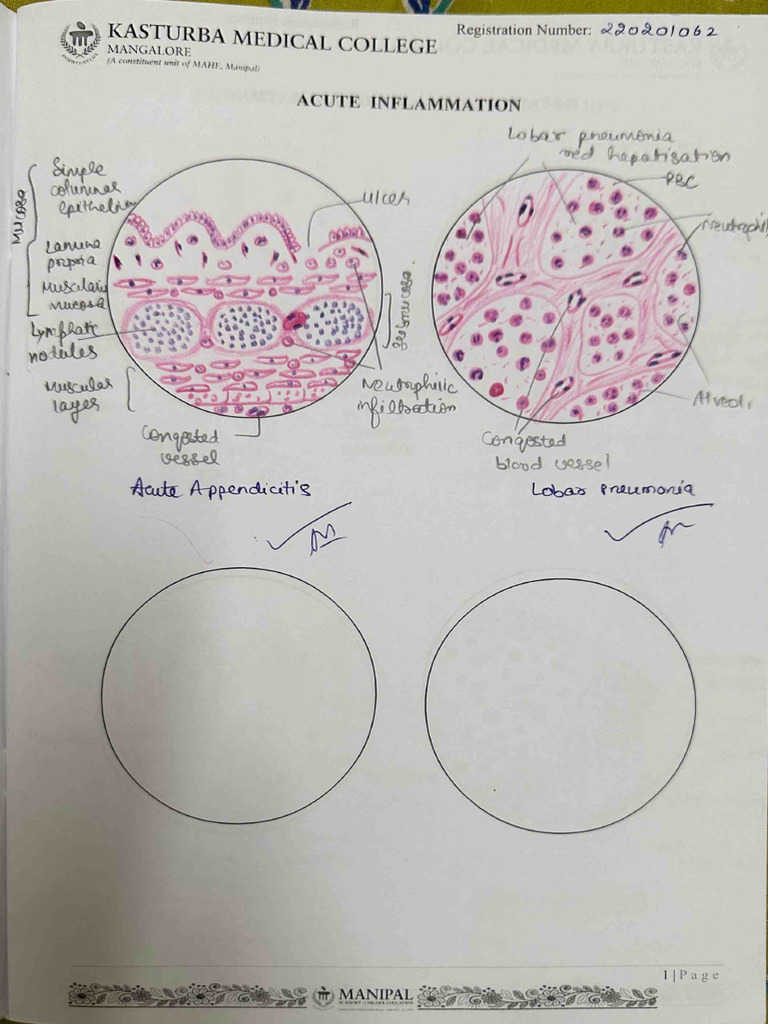 KASTURBA MEDICAL COLLEGE
MANGALORE
(A constituent unit of MAHE, Manipal)
Registration Number: 220201062
ACUTE INFLAMMATION
Mucosa
Simple
columnar
Epithelium
Lamina
propria
Muscularis
mucosa
Lymphatic
nodules
Muscular
layers
Congested
vessel
ulcer
submucosa
Neutrophilic
infiltration
Acute Appendicitis
Lobar pneumonia
red hepatisation
RBC
Neutrophil
Alveoli
Congested
blood vessel
Lobar Pneumonia
1 | Page
MANIPAL